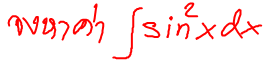 จงหาค่า ∫sin²xdx